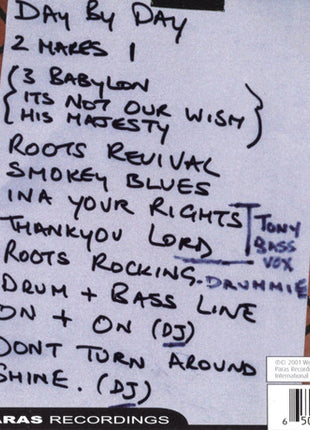 DAY BY DAY
2 MAKES 1
3 BABYLON
ITS NOT OUR WISH
HIS MAJESTY
ROOTS REVIVAL
SMOKEY BLUES
INA YOUR RIGHTS
THANKYOU LORD
TONY
BASS
VOX
ROOTS ROCKING. DRUMMIE
DRUM + BASS LINE
ON + ON (DJ)
DONT TURN AROUND
SHINE. (DJ)
ARAS RECORDINGS
2001
Paras
International
6 50